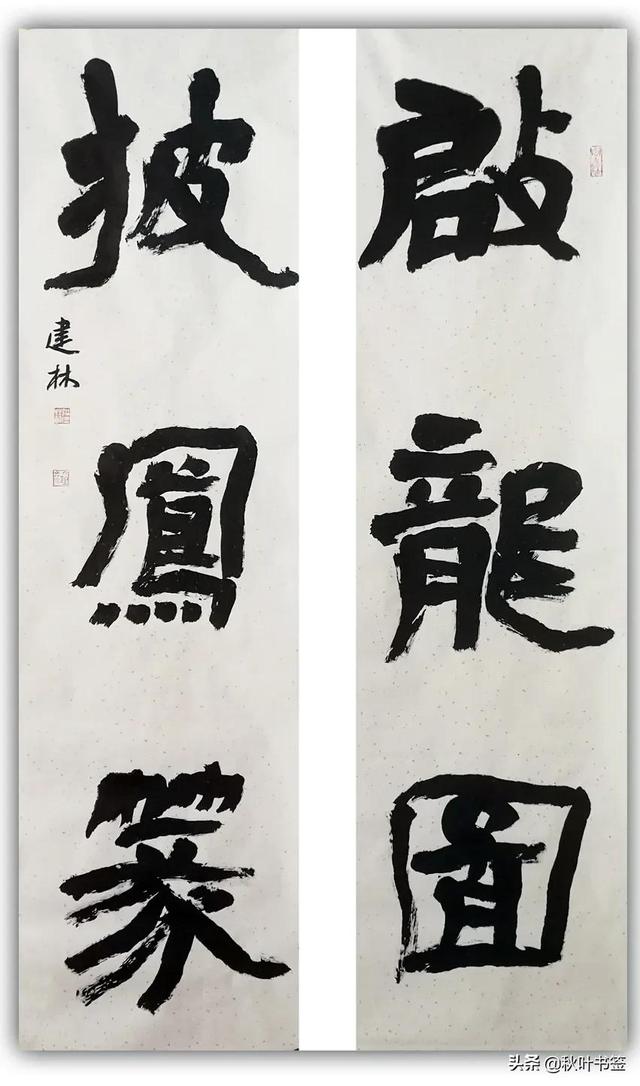 啟龍圖
披鳳篆
建林
头条 @秋叶书签